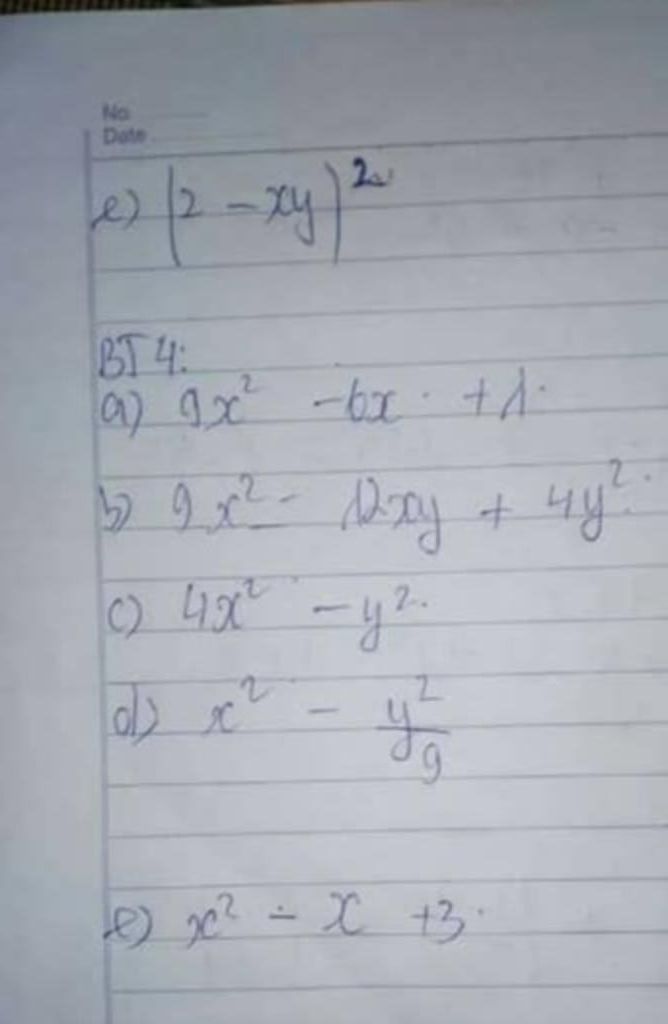 No
Date
e) (2 - xy)²
BT 4:
a) 9x² - 6x + 1.
b) 9x² - 12xy + 4y².
c) 4x² - y².
d) x² - y²/9
e) x² - x + 3.